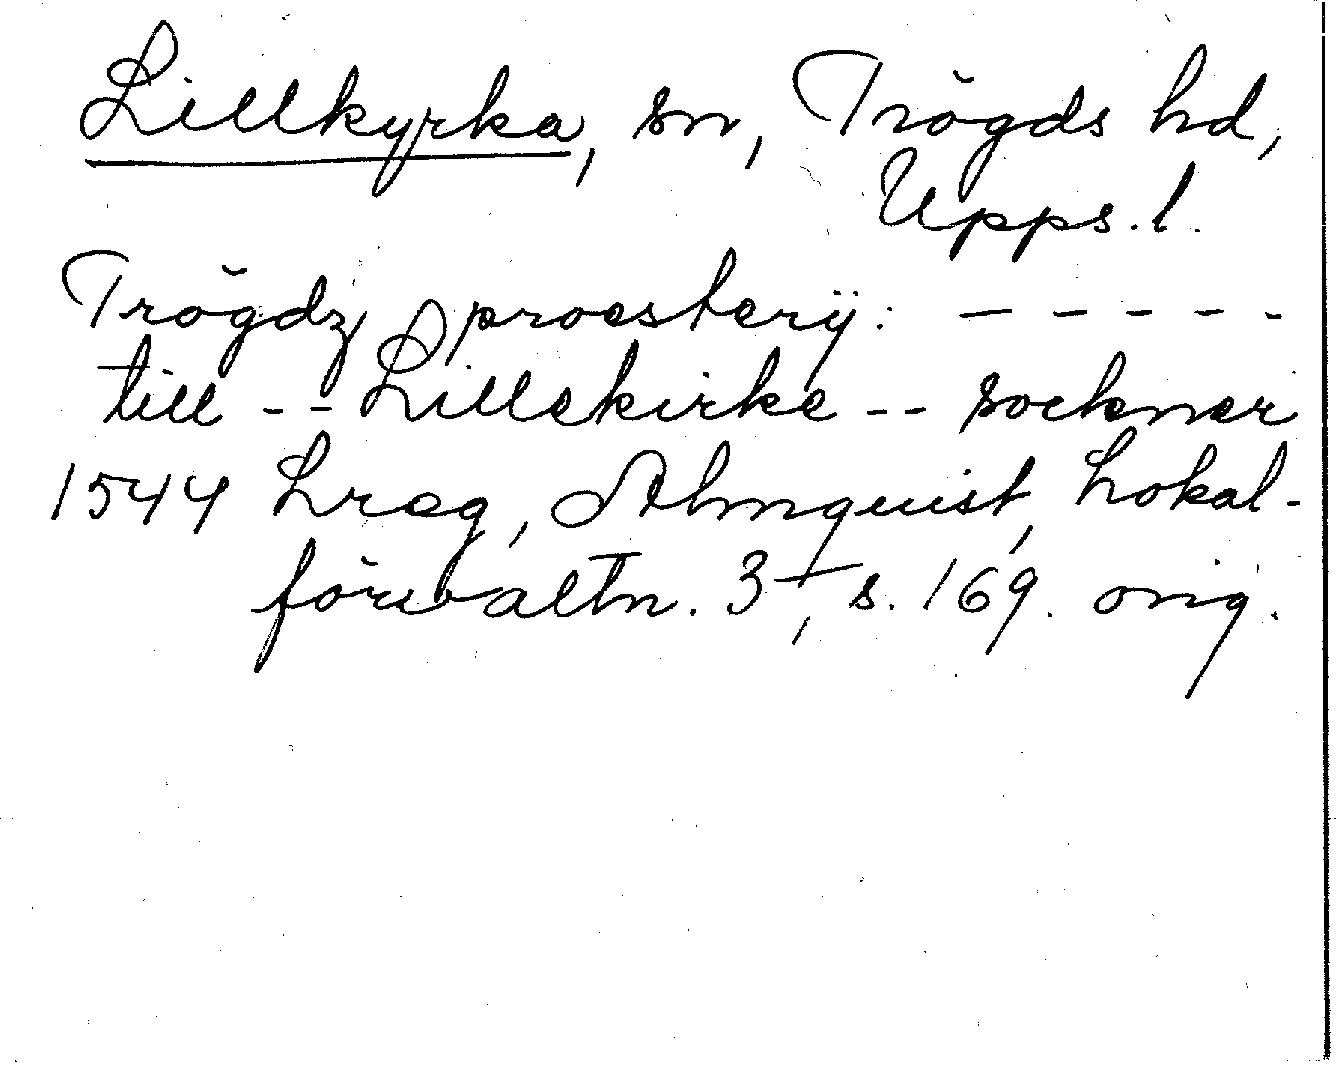 Lillkyrka, sn, Trögds hd,
Upps. l.
Trögdz proesterÿ: - - - - -
till - - Lillekirke - - sockner
1544 Lreg, Almquist, Lokal-
förvaltn. 3, s. 169. orig.